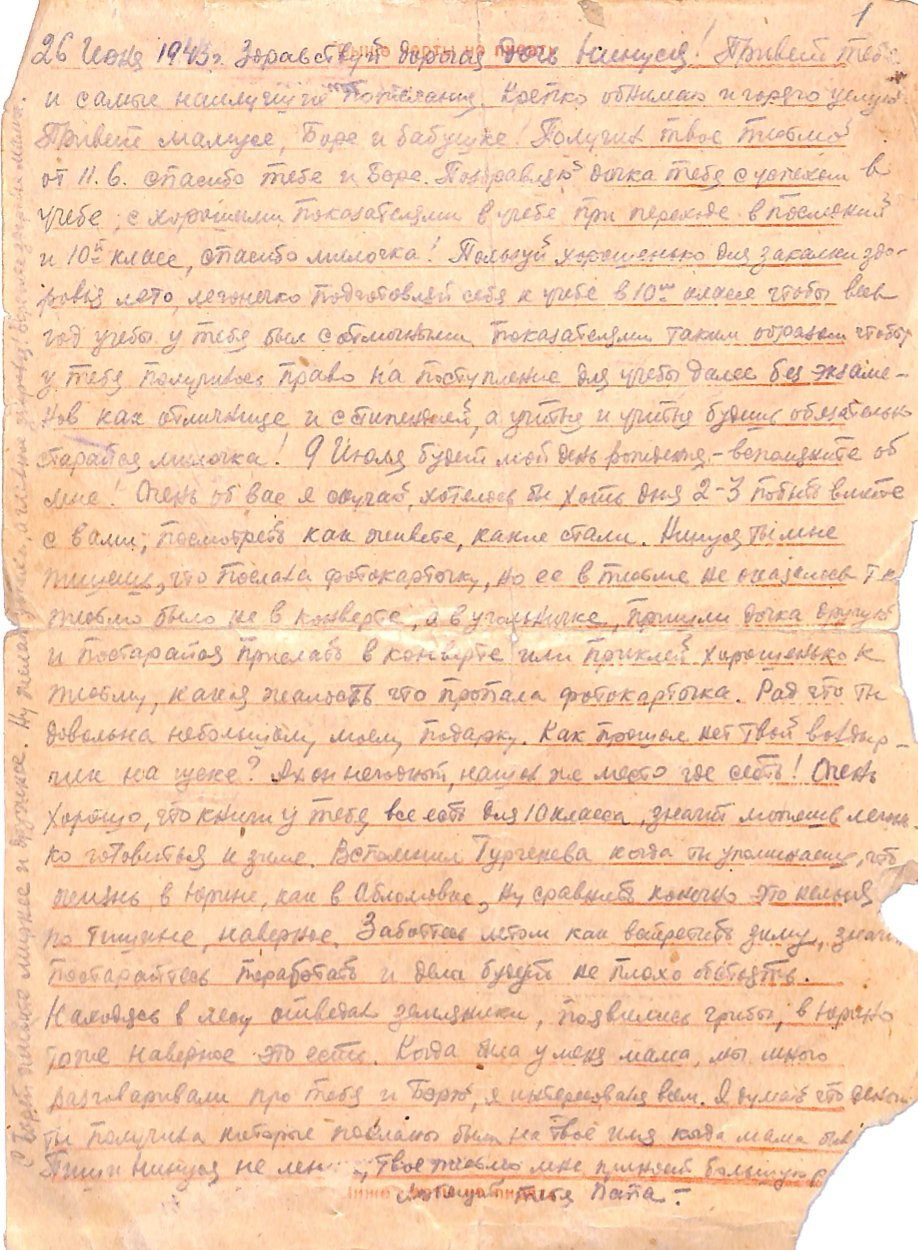 1
26 Июня 1943г. Здравствуй дорогая дочь Нинуся! Привет тебе
и самые наилучшие пожелания. Крепко обнимаю и горячо целую
Привет мамусе, Боре и бабушке! Получил твое письмо
от 11.6. спасибо тебе и Боре. Поздравляю дочка тебя с успехом в
учебе, с хорошими показателями в учебе при переходе в последний
и 10й класс, спасибо милочка! Пользуй хорошенько для закалки здо-
ровья лето, легонечко подготовляй себя к учебе в 10м классе чтобы весь
год учебы у тебя был с отличными показателями таким образом чтобы
у тебя получилось право на поступление для учебы далее без экзаме-
нов как отличнице и стипендией, а учиться и учиться будешь обязательно
старайся милочка! 9 Июля будет мой день рождения - вспомните об
мне! Очень об вас я скучаю, хотелось бы хоть дня 2-3 побыть вместе
с вами, посмотреть как живете, какие стали. Нинуся ты мне
пишешь, что послала фотокарточку, но ее в письме не оказалось т.к.
письмо было не в конверте, а в угольничке, пришли дочка другую
и постарайся прислать в конверте или приклей хорошенько к
письму, какая жалость что пропала фотокарточка. Рад что ты
довольна небольшому моему подарку. Как прошел нет твой волдыр-
чик на щеке? Ах он негодный, нашел же место где сесть! Очень
хорошо, что книги у тебя все есть для 10 класса, значит можешь легонь-
ко готовиться к зиме. Вспомнил Тургенева когда ты упоминаешь, что
жизнь в Юрине, как в Обломовке, ну сравнить конечно это нельзя
по тишине, наверное. Заботтесь летом как встретить зиму, значит
постарайтесь поработать и дела будут не плохо обстоять.
Находясь в лесу отведал земляники, появились грибы, в Юрино
тоже наверное это есть. Когда была у меня мама, мы много
разговаривали про тебя и Борю, я интересовался всем. Я думаю что деньги
ты получила которые посланы были на твое имя когда мама была
Пиши Нинуся не лен , твое письмо мне приносит большую р
Любящий тебя Папа -
С Борей живите мирнее и дружнее. Ну желаю